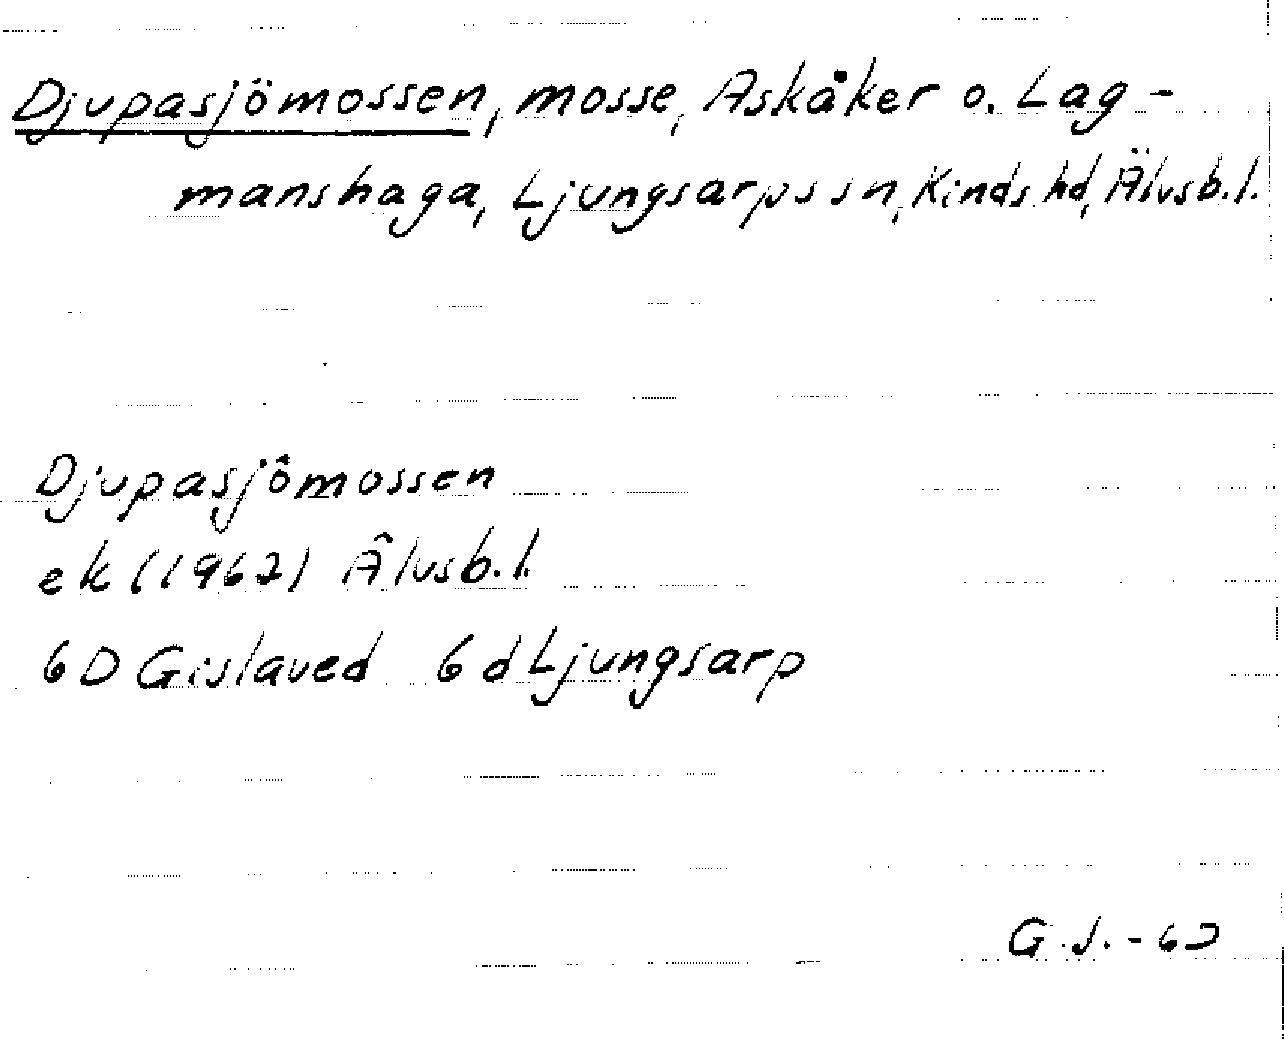 Djupasjömossen, mosse, Askåker o. Lag-
manshaga, Ljungsarps sn, Kinds hd, Älvsb. l.
Djupasjömossen
ek (1962) Älvsb. l.
6 D Gislaved 6 d Ljungsarp
G. J. - 62